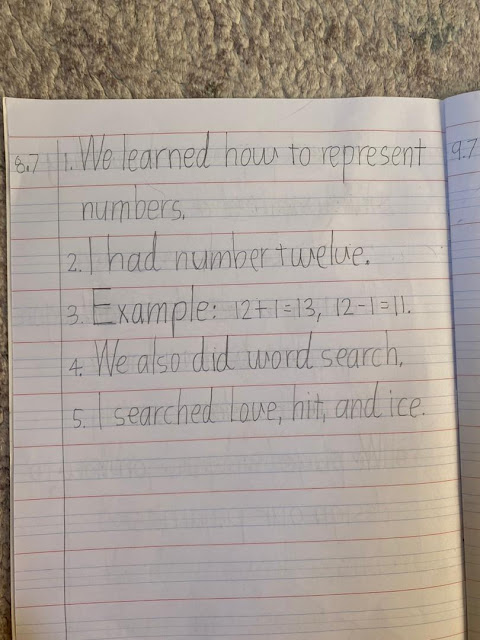 8.7 1. We learned how to represent 9.7
numbers.
2. I had number twelve.
3. Example: 12+1=13, 12-1=11.
4. We also did word search.
5. I searched love, hit, and ice.